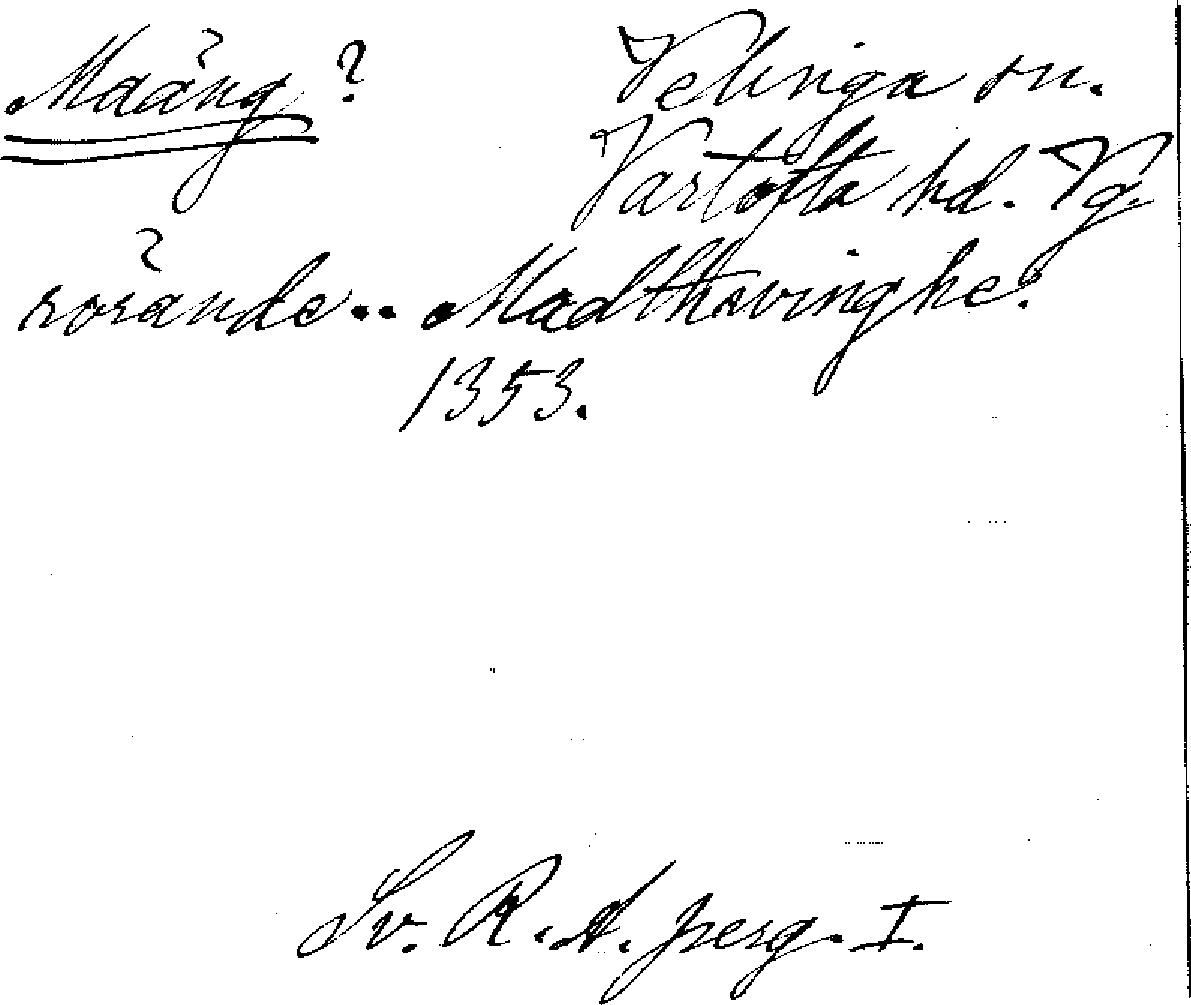 Maäng? Velinga sn.
Vartofta hd. Vg.
rörande.. Madthævinghe.
1353.
Sv. R. A. perg. I.